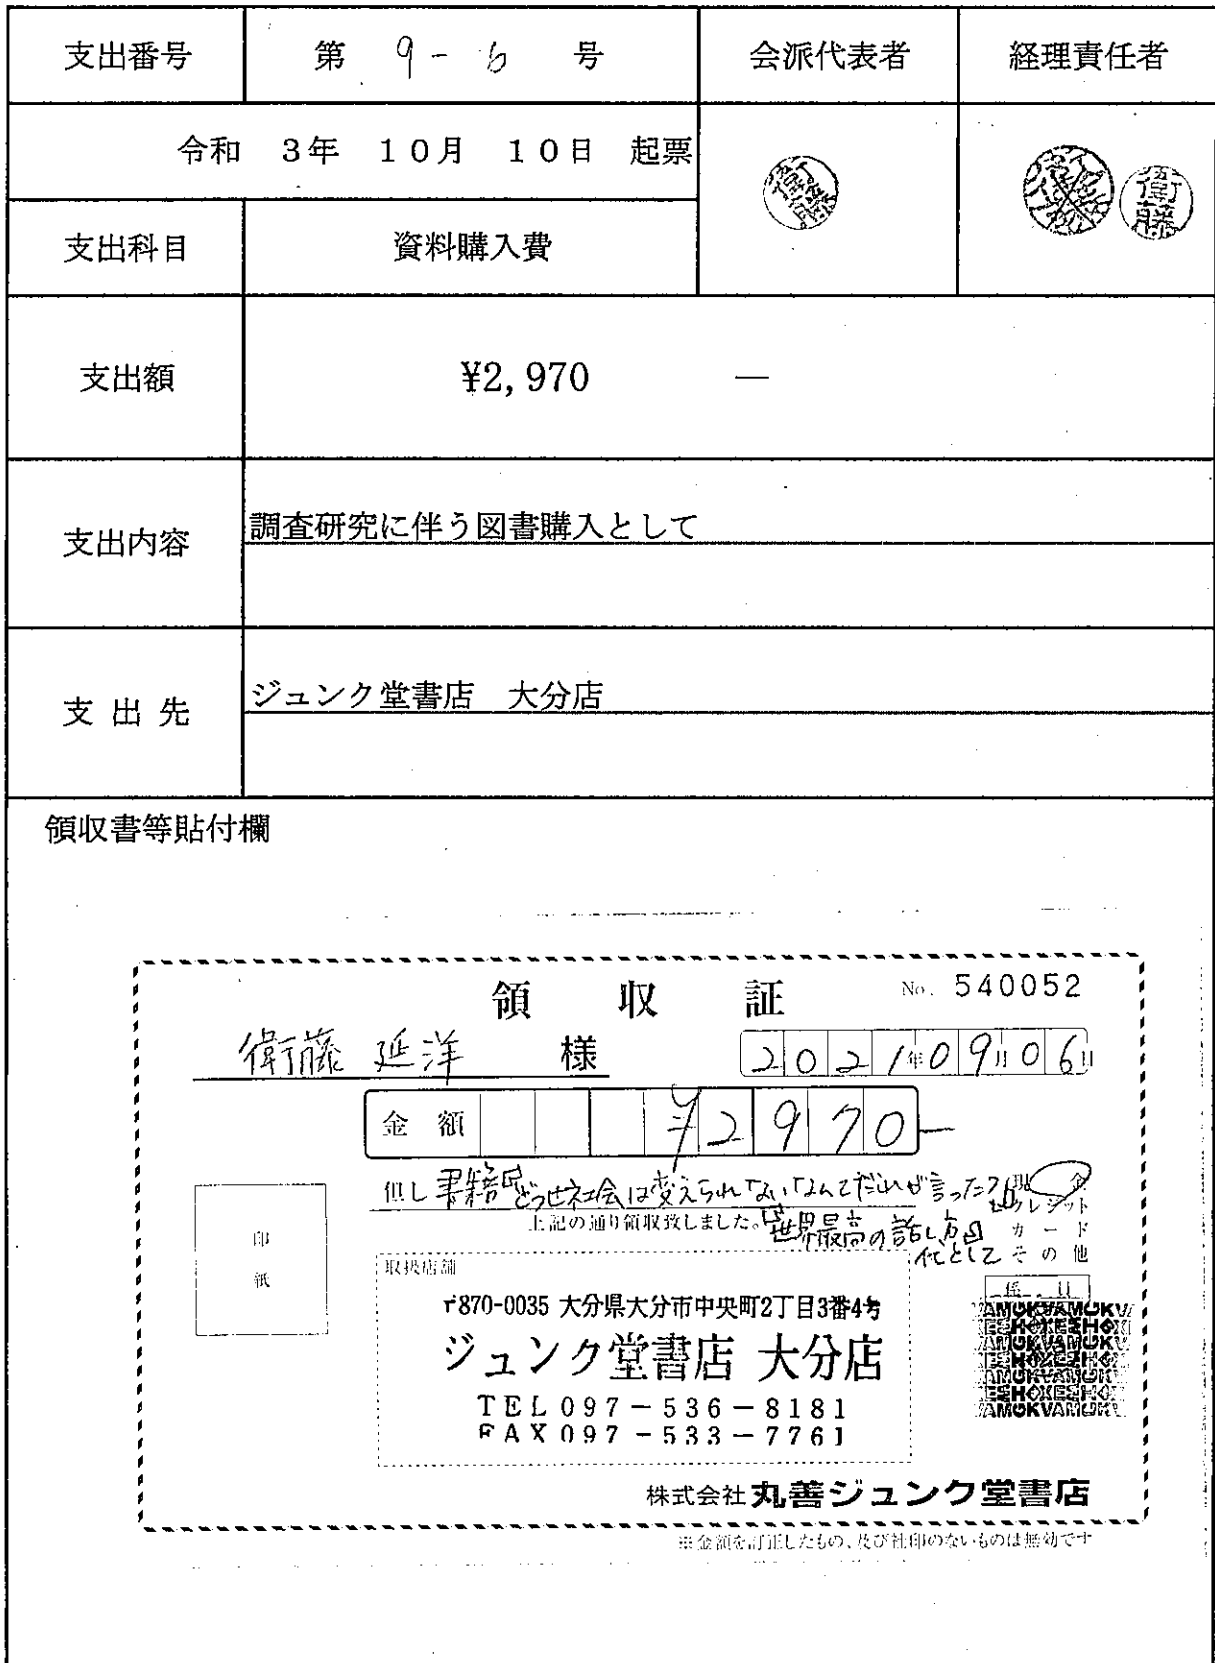 支出番号 第 9-6 号 会派代表者 経理責任者
令和 3年 10月 10日 起票
衛藤
支出科目 資料購入費
支出額 ¥2,970 ―
支出内容 調査研究に伴う図書購入として
支出先 ジュンク堂書店 大分店
領収書等貼付欄
領収証 No. 540052
衛藤 延洋 様 2021年09月06日
金額 ¥2970-
但し 書籍『どうせ社会は変えられないなんてだれが言った?』 現金
上記の通り領収致しました。『世界最高の話し方』 クレジット
カード
代として その他
印
紙
取扱店舗
係印
〒870-0035 大分県大分市中央町2丁目3番4号
ジュンク堂書店 大分店
TEL 097-536-8181
FAX 097-533-7761
株式会社 丸善ジュンク堂書店
※金額を訂正したもの、及び社印のないものは無効です